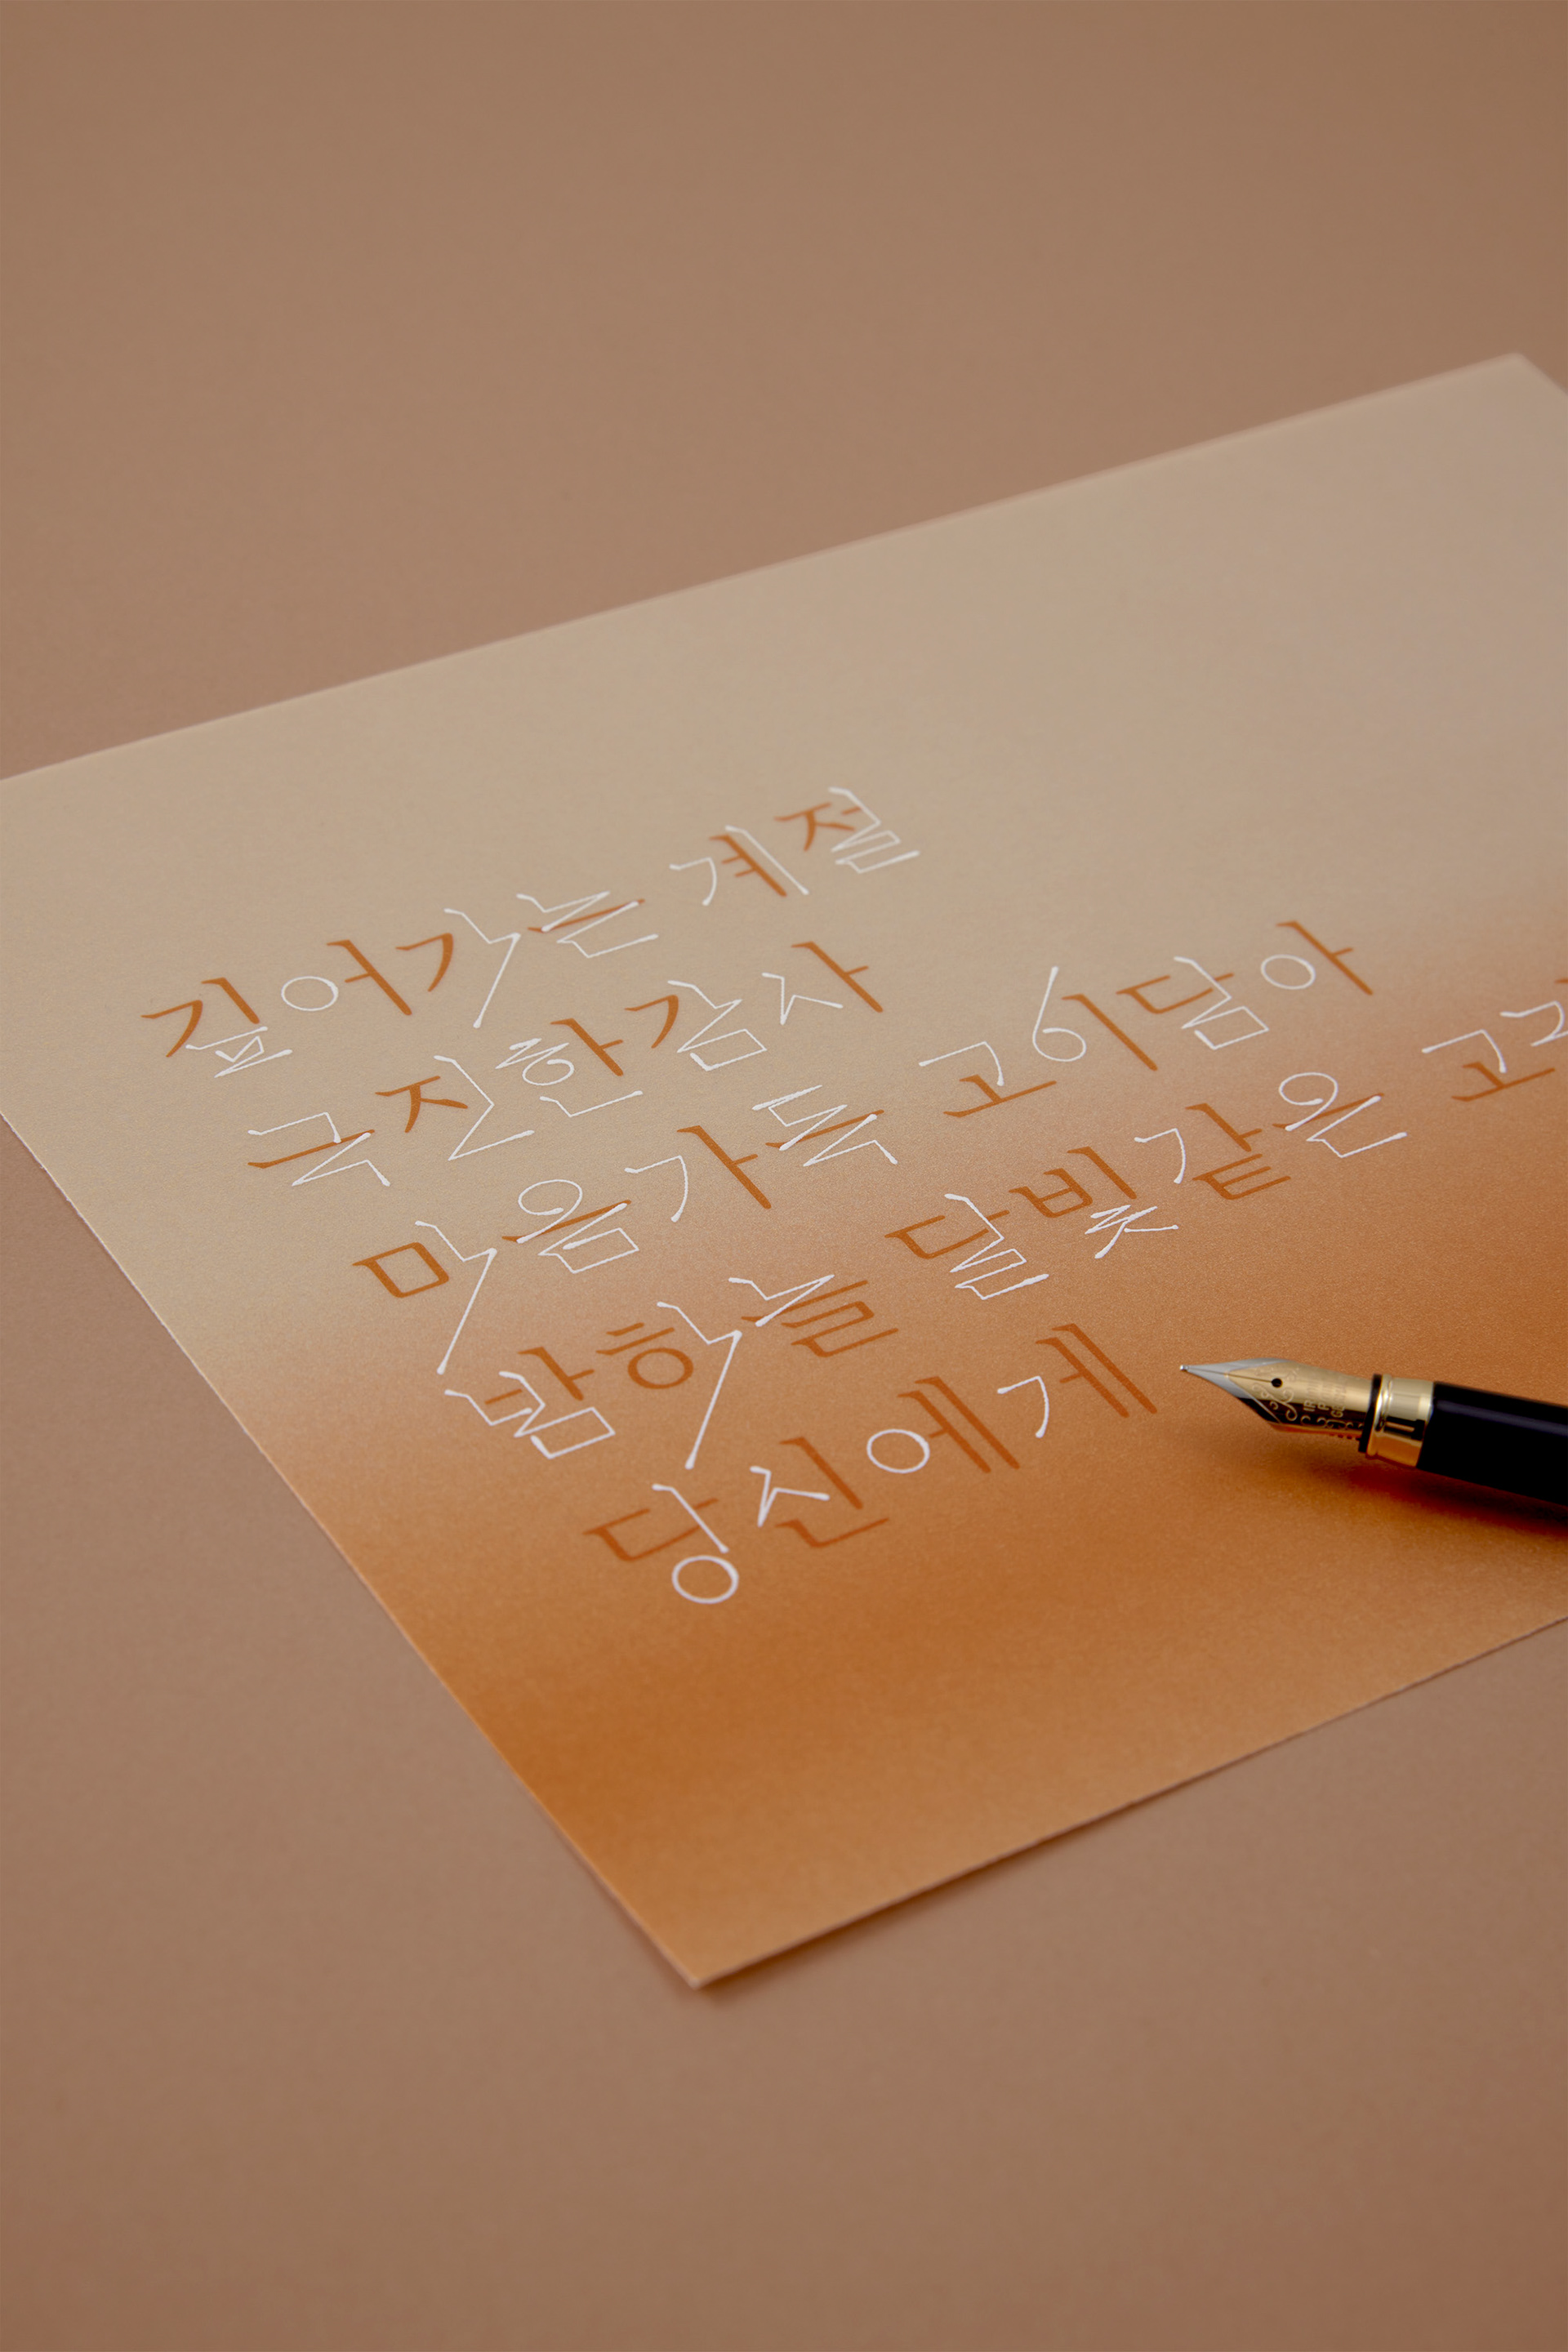 깊어가는 계절
극진한 감사
마음 가득 고이 담아
밤하늘 달빛 같은 고
당신에게